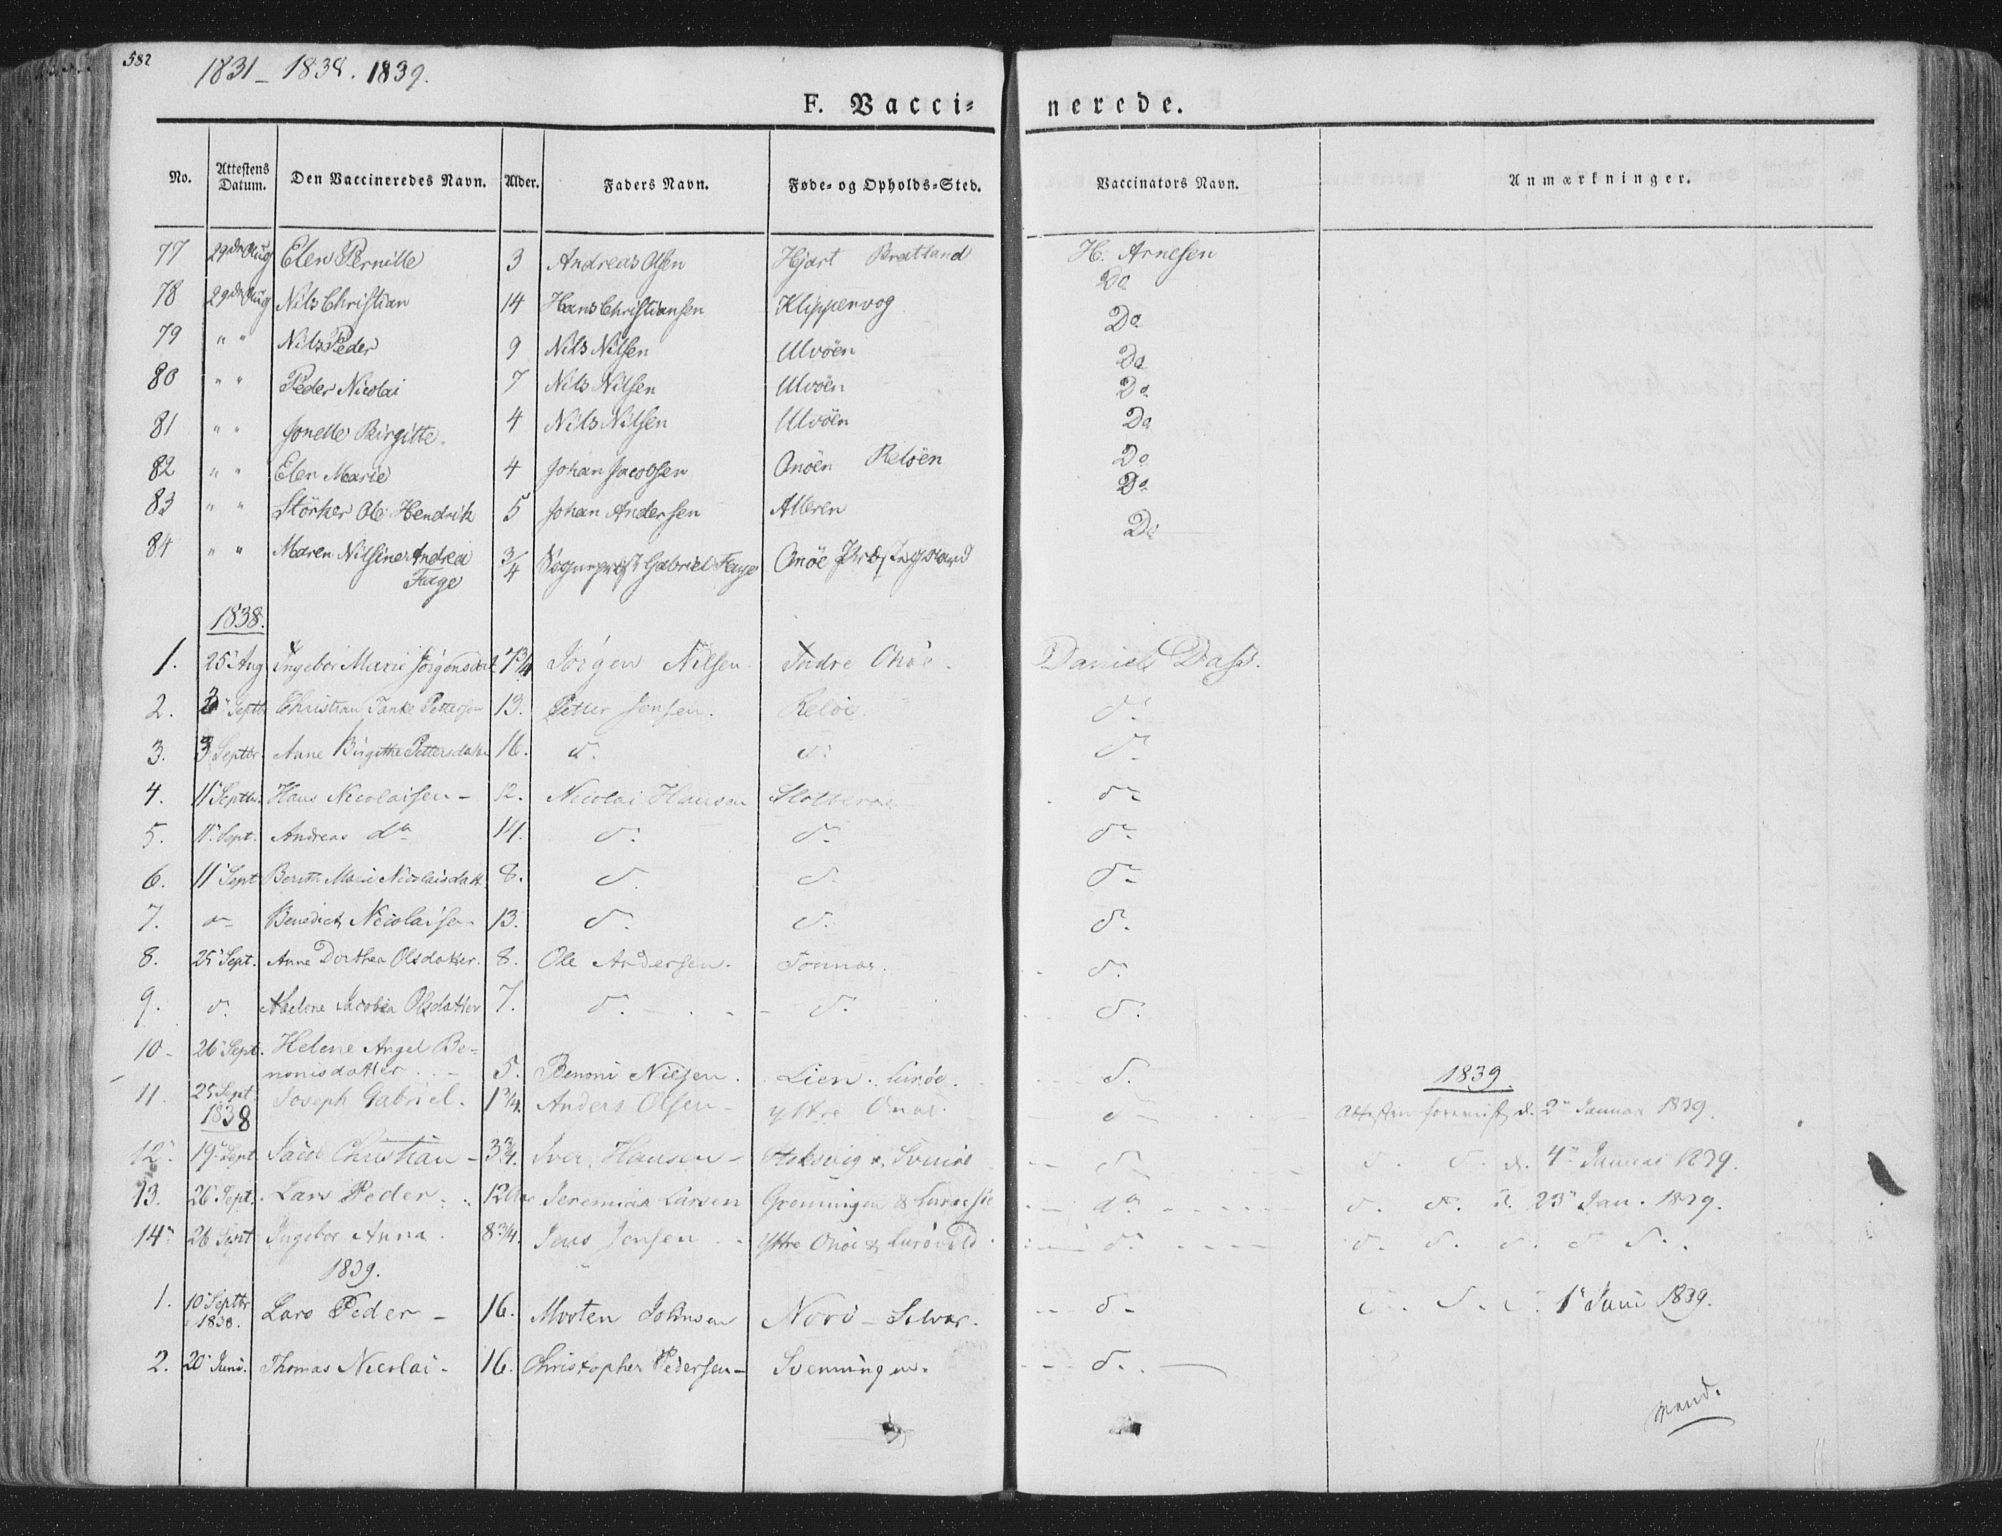 582
1831 - 1838. 1839.
F. Vaccinerede.
No. Attestens Datum. Den Vaccineredes Navn. Alder. Faders Navn. Føde- og Opholds-Sted. Vaccinators Navn. Anmærkninger.
77 29de Aug Elen Pernille 3 Andreas Olsen Hjart Bratland H: Arnesen
78 29de Aug Nils Christian 14 Hans Christiansen Klippenvog Do
79 " " Nils Peder 9 Nils Nilsen Ulvöen Do
80 " " Peder Nicolai 7 Nils Nilsen Ulvöen Do
81 " " Jonette Birgitte. 4 Nils Nilsen Ulvöen Do
82 " " Elen Marie 4 Johan Jacobsen Onöen Relöen Do
83 " " Störker Ole Hendrik 5 Johan Andersen Alteren Do
84 " " Maren Nilsine Andrea 3/4 Gabriel Fage Onöe Do
Fage
1838.
1. 25 Aug Ingebor Marie Jörgensdat 7 3/4 Jörgen Nilsen. Indre Onöe. Daniels Dass.
2. 3 Septbr Christian Tanke Pettersen 13. Petter Jensen. Relöe. do
3. 3 Septbr. Anne Birgitte Pettersdatter 16. do do do
4. 11 Septbr. Hans Nicolaisen - 12. Nicolai Hansen do
5. 11 Sept. Andreas do 14. do do do
6. 11 Sept Bereth Marie Nicolaisdatt 8. do do do
7. do Benedict Nicolaisen 13. do do do
8. 25 Sept. Anne Dorthea Olsdatter. 8. Ole Andersen. Tonnes. do
9. do Jacobia Olsdatter 7. do do do
10 - 26 Sept. Helene Angel Be-
nonisdatter 5. Benoni Nilsen. Lien. Luröe. do 1839.
11. 25 Sept. Joseph Gabriel. 1 3/4. Anders Olsen - Yttre Onöe. do Attesten d. 2 Januar 1839.
1838
12. 19 Sept. Jacob Christian - 3 3/4. Iver Hansen - do do do d. 4 Januar 1839.
13. 26 Sept. Lars Peder. 12 Jeremias Larsen Gronningen & do do do d. 23 Jan. 1839.
14. 26 Sept Ingebor Anna. 8 3/4. Jens Jensen Yttre Onöe & do do do do do do
1839.
1. 10 Septbr 1838. Lars Peder - 16. Morten Johnsen Norö - Selvar. do do do do 1 Juni 1839.
2. 20 Juni. Thomas Nicolai - 16. Christopher Pedersen - Svenningen. do
Vend.